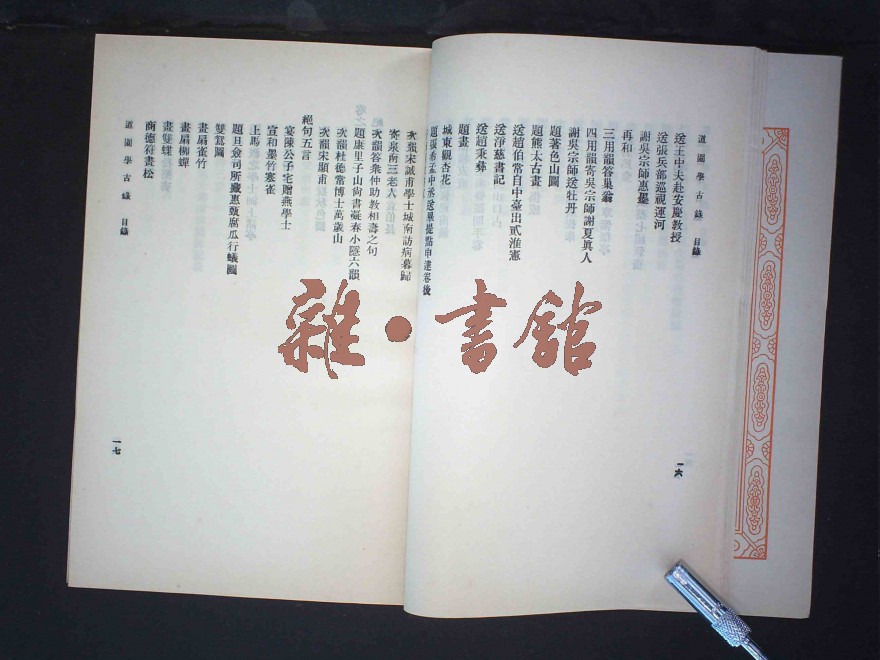 道園學古錄 目錄
送王中夫赴安慶教授
送張兵部巡視運河
謝吳宗師惠墨
再和
三用韻答巢翁
四用韻寄吳宗師謝夏真人
謝吳宗師送牡丹
題著色山圖
題熊太古畫
送趙伯常自中臺出貳淮憲
送淨慈書記
送趙秉彝
題畫
城東觀杏花
題張希孟中丞送畢提點申達卷後
次韻宋誠甫學士城南訪病暮歸
寄泉南三老人
次韻答衆仲助教相壽之句
題康里子山尚書凝春小隱六韻
次韻杜德常博士萬歲山
次韻宋顯甫
絕句五言
宴陳公子宅贈燕學士
宣和墨竹寒雀
上馬
題旦僉司所藏惠甄腐瓜行蟻圖
雙鴛圖
畫扇雀竹
畫扇柳蟬
畫雙蛙
商德符畫松
道園學古錄 目錄
一六
一七
雜·書館